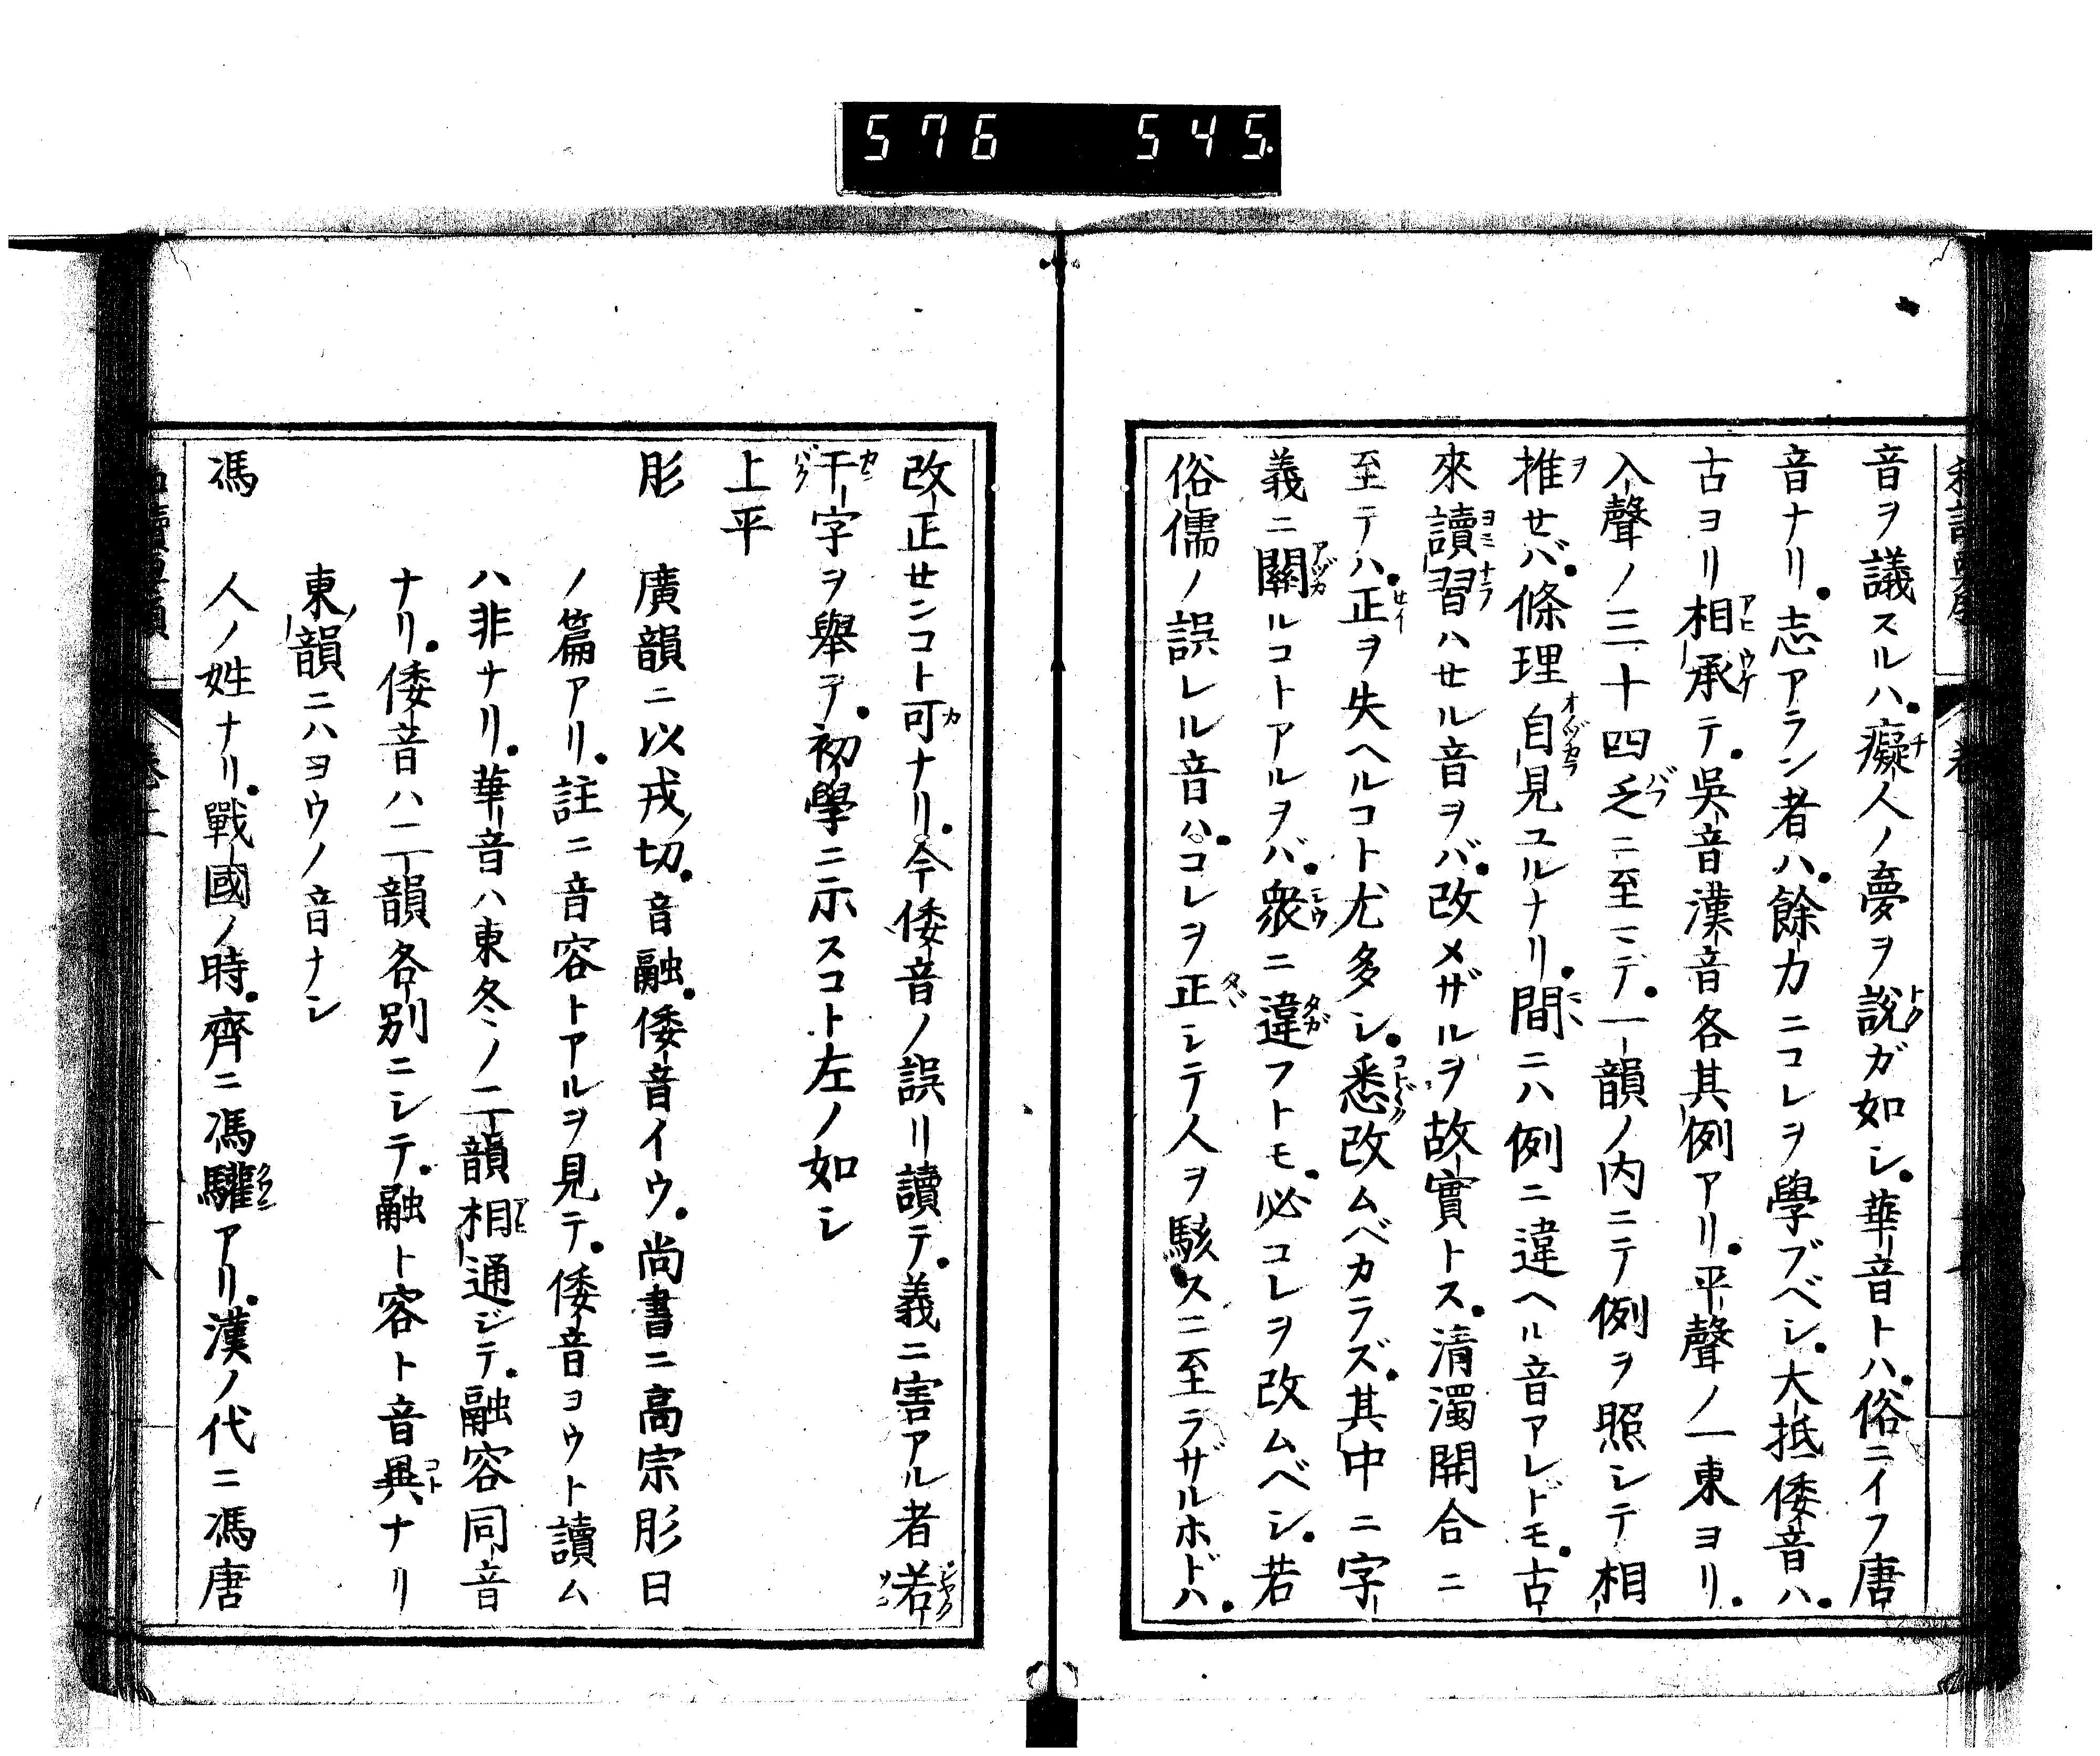 576 545
音ヲ議スルハ癡人ノ夢ヲ説ガ如シ華音トハ俗ニイフ唐
音ナリ志アラン者ハ餘力ニコレヲ學ブベシ大抵倭音ハ
古ヨリ相承テ吳音漢音各其例アリ平聲ノ一東ヨリ
入聲ノ三十四乏ニ至マデ一韻ノ内ニテ例ヲ照シテ相
推セバ條理自見ユルナリ間ニハ例ニ違ヘル音アレドモ古
來讀習ハセル音ヲバ改メザルヲ故實トス清濁開合ニ
至テハ正ヲ失ヘルコト尤多シ悉改ムベカラズ其中ニ字
義ニ關ルコトアルヲバ衆ニ違フトモ必コレヲ改ムベシ若
俗儒ノ誤レル音ハコレヲ正シテ人ヲ駭スニ至ラザルホドハ
改正センコト可ナリ今倭音ノ誤リ讀テ義ニ害アル者若
干字ヲ舉テ初學ニ示スコト左ノ如シ
上平
肜 廣韻ニ以戎切音融倭音イウ尚書ニ高宗肜日
ノ篇アリ註ニ音容トアルヲ見テ倭音ヨウト讀ム
ハ非ナリ華音ハ東冬ノ二韻相通ジテ融容同音
ナリ倭音ハ二韻各別ニシテ融ト容ト音異ナリ
東韻ニハヨウノ音ナシ
馮 人ノ姓ナリ戰國ノ時齊ニ馮驩アリ漢ノ代ニ馮唐